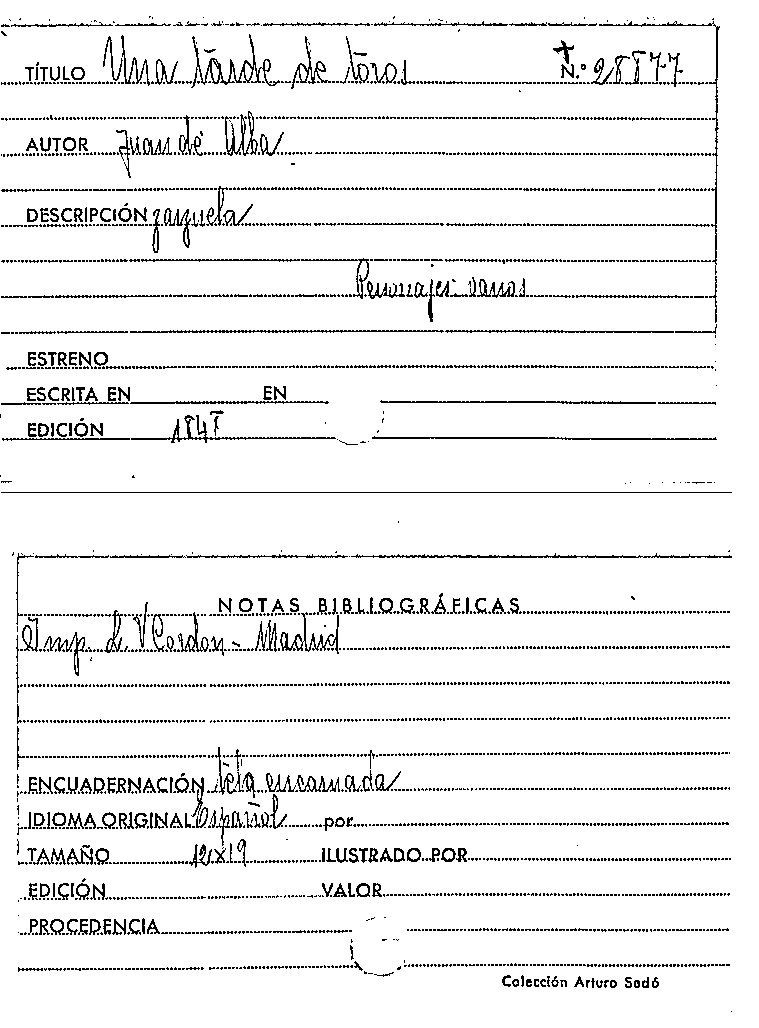 TÍTULO Una tarde de toros N.º 28877
AUTOR Juan de Alba
DESCRIPCIÓN zarzuela
Personajes varios
ESTRENO
ESCRITA EN EN
EDICIÓN 1848
NOTAS BIBLIOGRÁFICAS
Imp. L. V Cordon - Madrid
ENCUADERNACIÓN tela encarnada
IDIOMA ORIGINAL Español por
TAMAÑO 12x19 ILUSTRADO POR
EDICIÓN VALOR
PROCEDENCIA
Colección Arturo Sedó